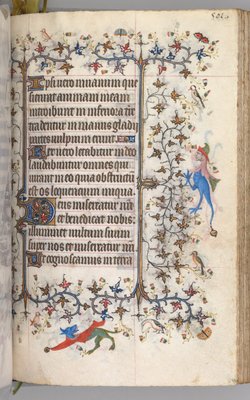 Ipsi uero in uanum que
sierunt animam meam
introibunt in inferiora terre
tradentur in manus gladij
partes uulpium erunt
Rex uero letabitur in deo
laudabuntur omnes qui
iurant in eo quia obstructum
est os loquentium iniqua
Deus misereatur nri
et benedicat nobis
illuminet uultum suum
super nos et misereatur nri
Ut cognoscamus in terra